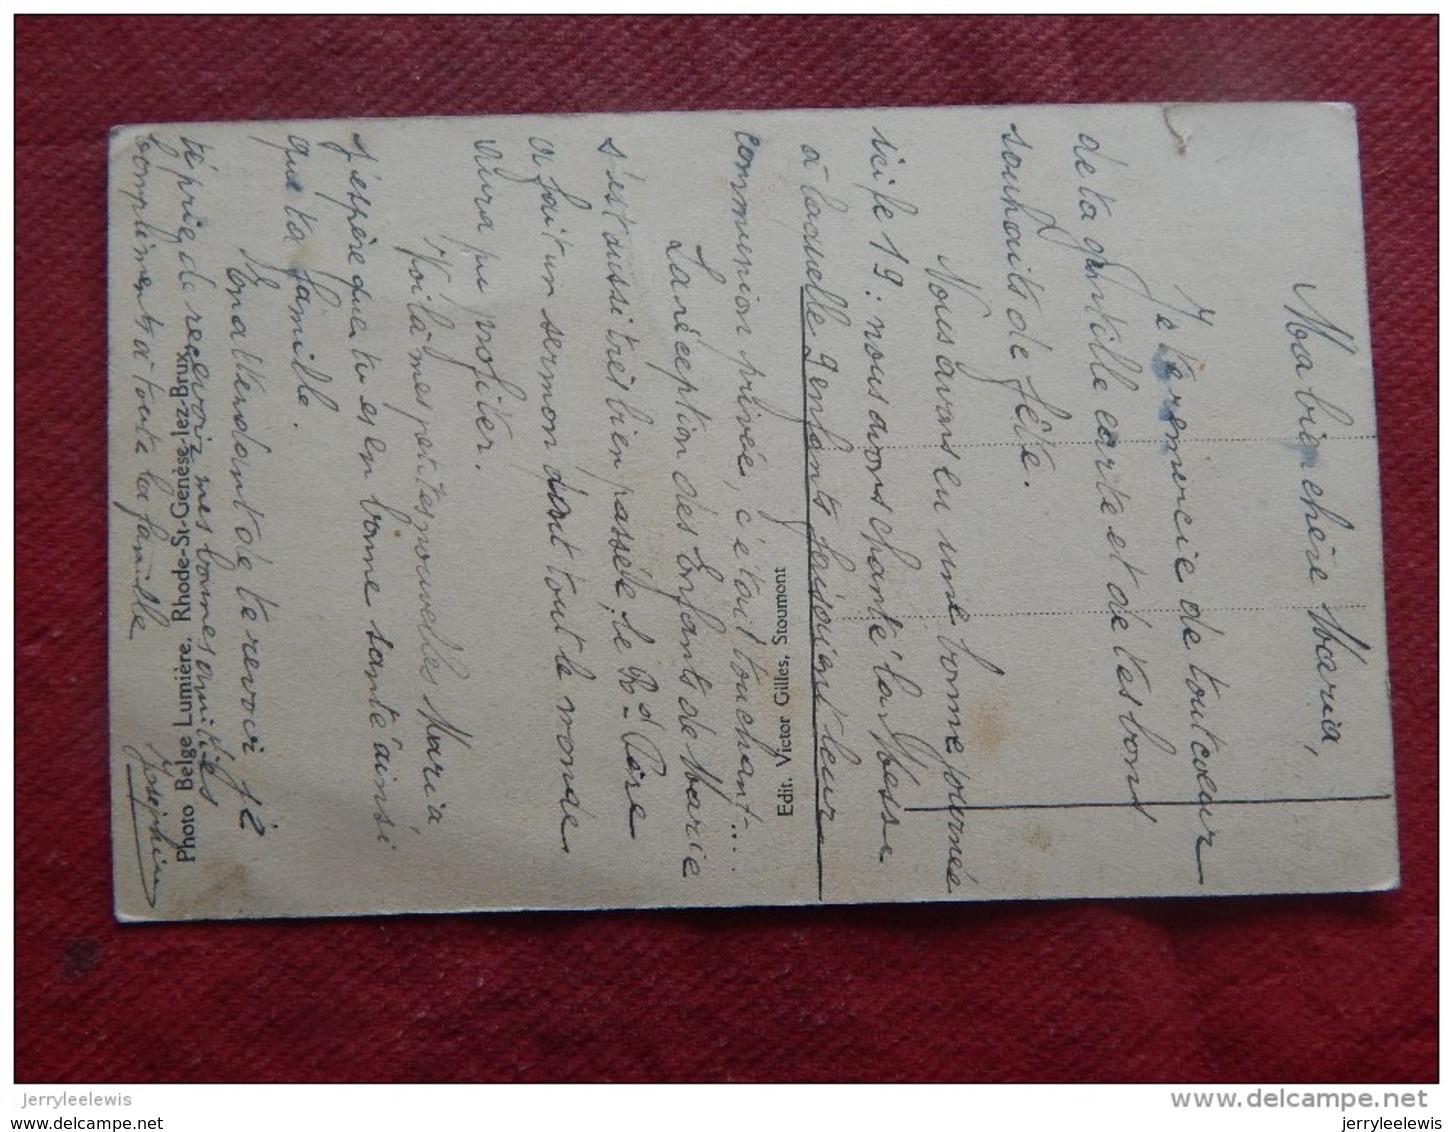 Ma bien chère Maria,
Je te remercie de tout cœur
de ta gentille carte et de tes bons
souhaits de fête.
Nous avons eu une bonne journée
ici le 19 : nous avons chanté la Messe
à laquelle 9 enfants faisaient leur
communion privée, c'était touchant...
La réception des Enfants de Marie
s'est aussi très bien passée, le Rd Père
a fait un sermon dont tout le monde
aura pu profiter.
Voilà mes petites nouvelles Maria
j'espère que tu es en bonne santé ainsi
que ta famille.
En attendant de te revoir je
te prie de recevoir mes bonnes amitiés
Compliments à toute la famille
Joséphine
Edit. Victor Gilles, Stoumont
Photo Belge Lumière, Rhode-St-Genèse-lez-Brux.
jerryleelewis
www.delcampe.net
jerryleelewis
jerryleelewis